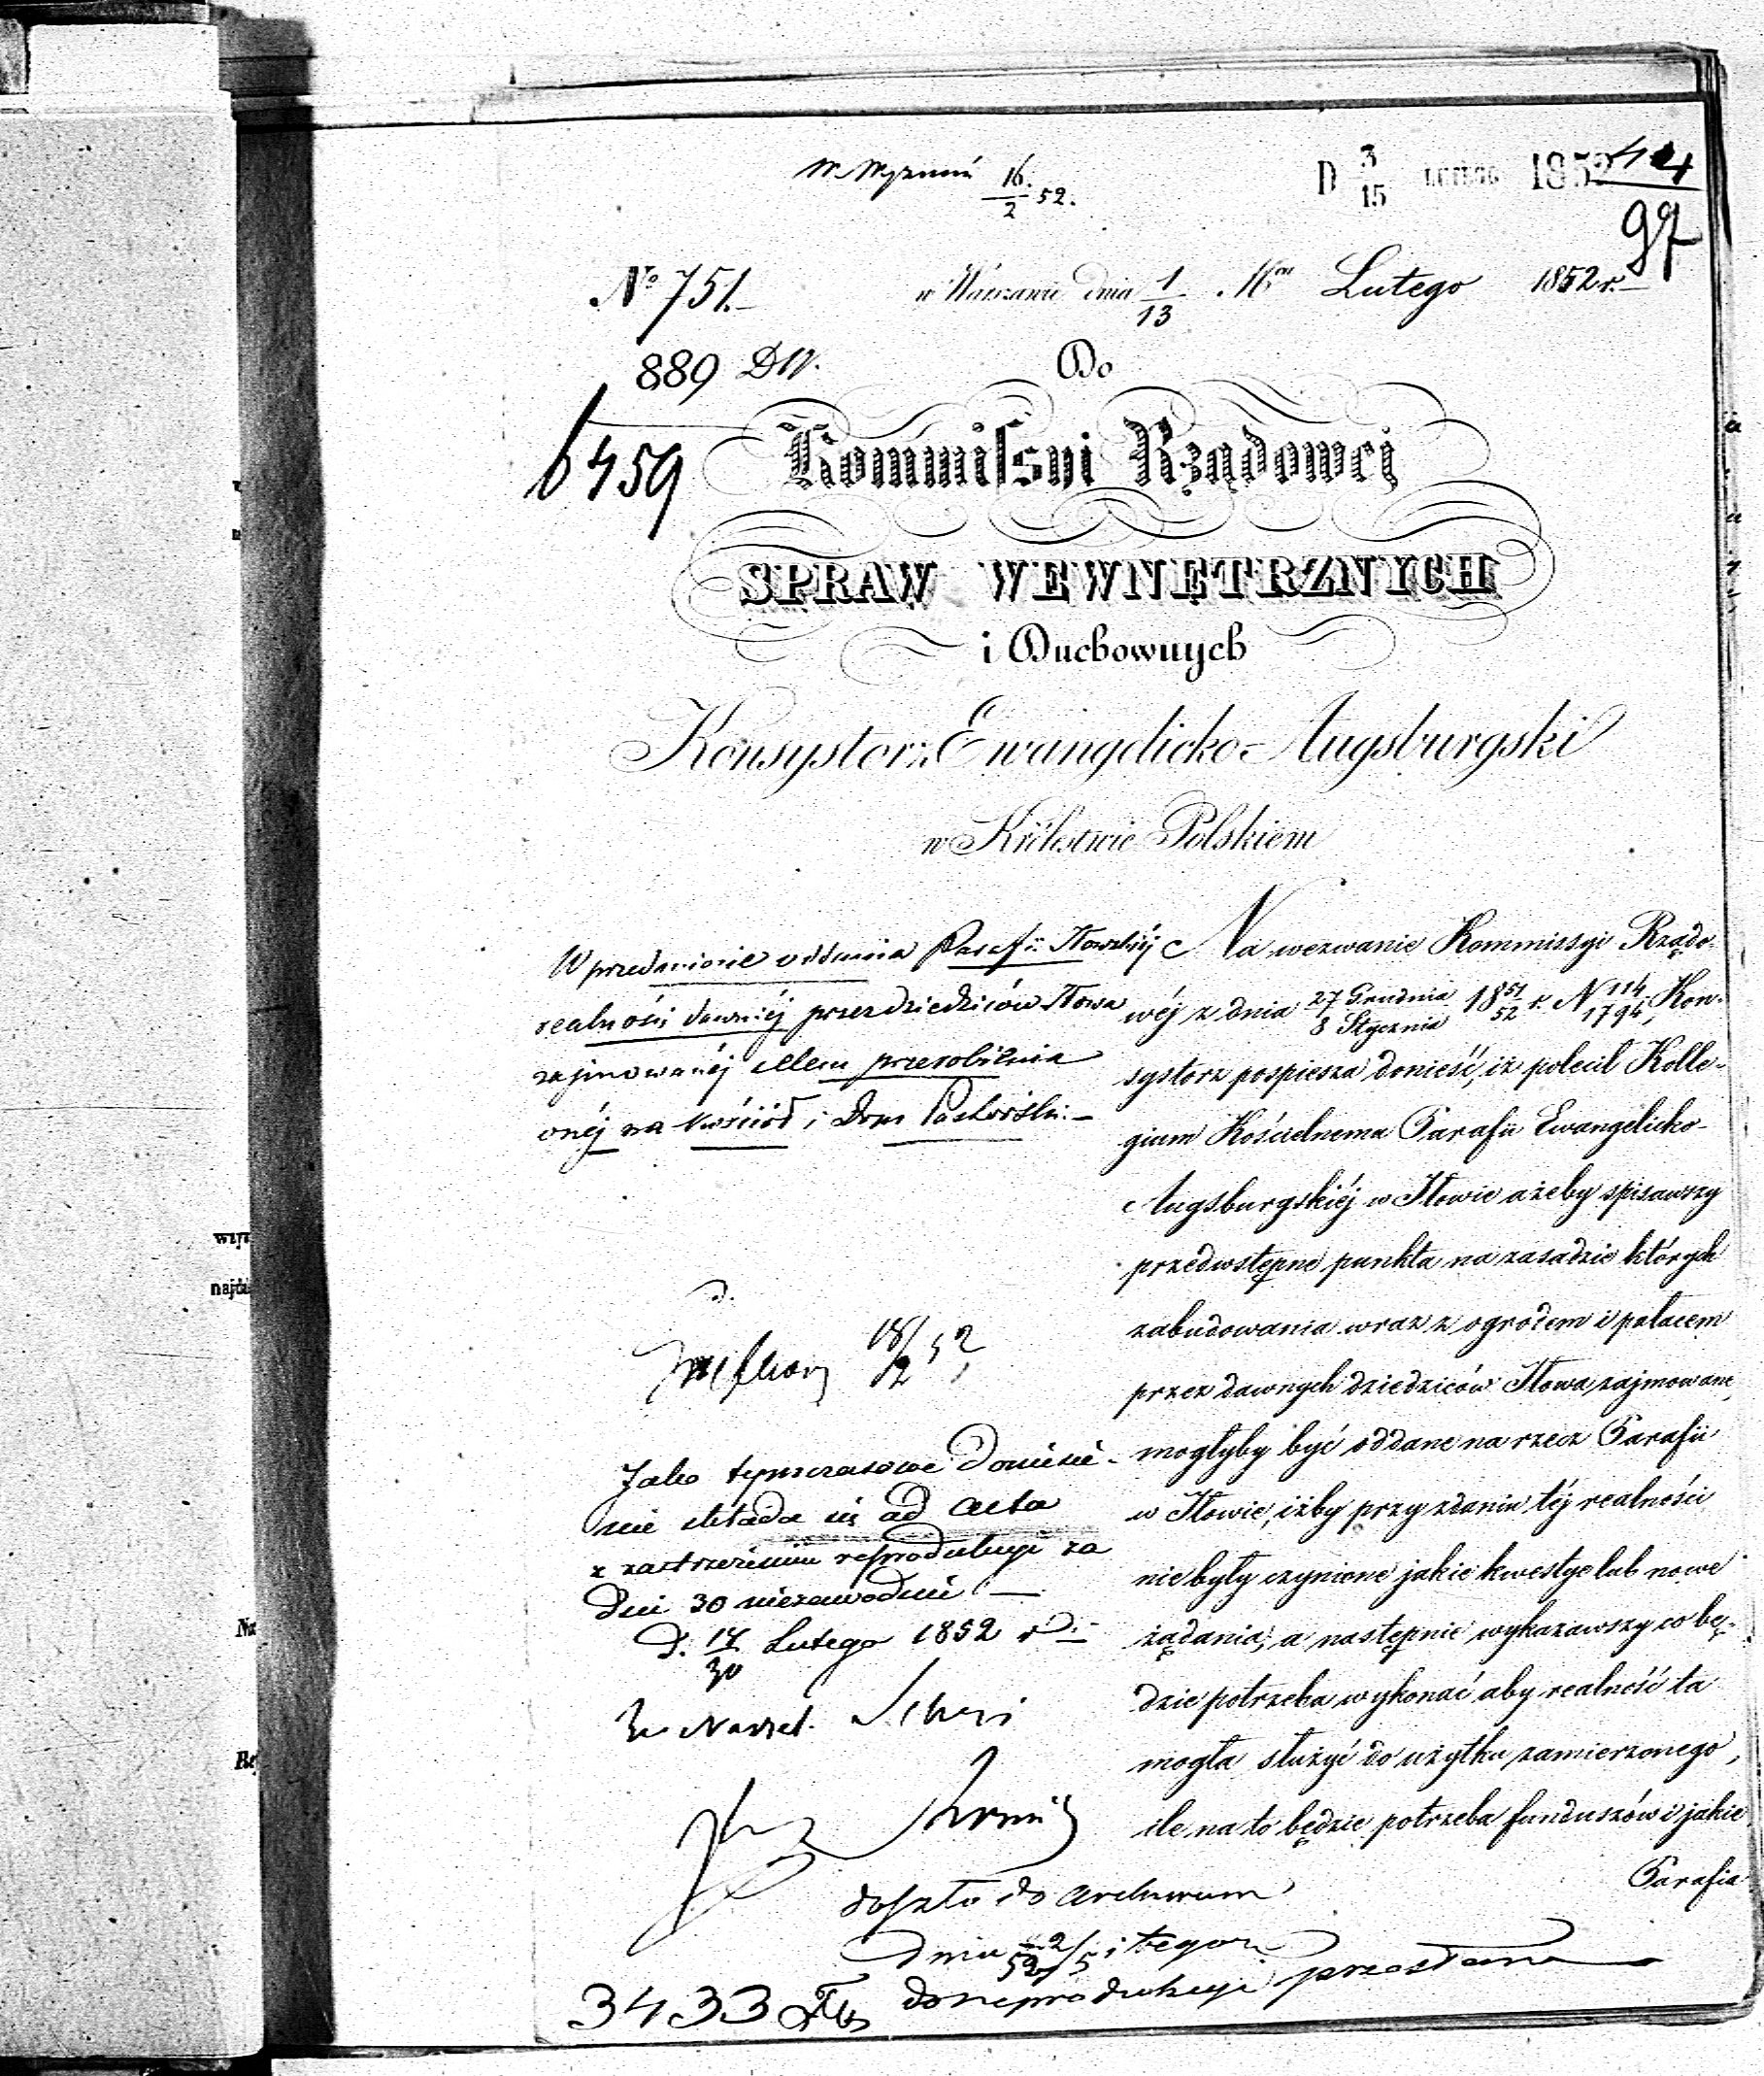 W. Wyznań 16/2 52.
D 3/15 LUTEGO 1852
97
No 751.
w Warszawie dnia 1/13 Mca Lutego 1852 r.
889 DW.
Do
6459
Kommissyi Rządowej
SPRAW WEWNĘTRZNYCH
i Duchownych
Konsystorz Ewangelicko-Augsburgski
w Królestwie Polskiem
W przedmiocie oddania Parafii Iłowskiéj
realności dawniéj przez dziedziców Iłowa
zajmowanéj celem przerobienia
onéj na kościół i Dom Pastorski.
Na wezwanie Kommissyi Rządo-
wéj z dnia 27 Grudnia/8 Stycznia 1851/52 r. N 114/1794, Kon-
systorz pospiesza donieść, iż polecił Kolle-
gium Kościelnemu Parafii Ewangelicko-
Augsburgskiéj w Iłowie ażeby spisawszy
przedwstępne punkta na zasadzie których
zabudowania wraz z ogrodem i pałacem
przez dawnych dziedziców Iłowa zajmowane,
mogłyby być oddane na rzecz Parafii
w Iłowie, iżby przy zdaniu téj realności
nie były czynione jakie kwestye lub nowe
żądania, a następnie wykazawszy co bę-
dzie potrzeba wykonać aby realność ta
mogła służyć do użytku zamierzonego,
ile na to będzie potrzeba funduszów i jakie
Parafia
18/2 52
Jako tymczasowe doniesie-
nie składa się ad acta
z zastrzeżeniem reprodukcyi za
dni 30 niezawodnie
D. 17/30 Lutego 1852 r
Za Naczel.
doszło do archiwum
dnia 2/5 52 i tegoż
do reprodukcyi przesłano
3433